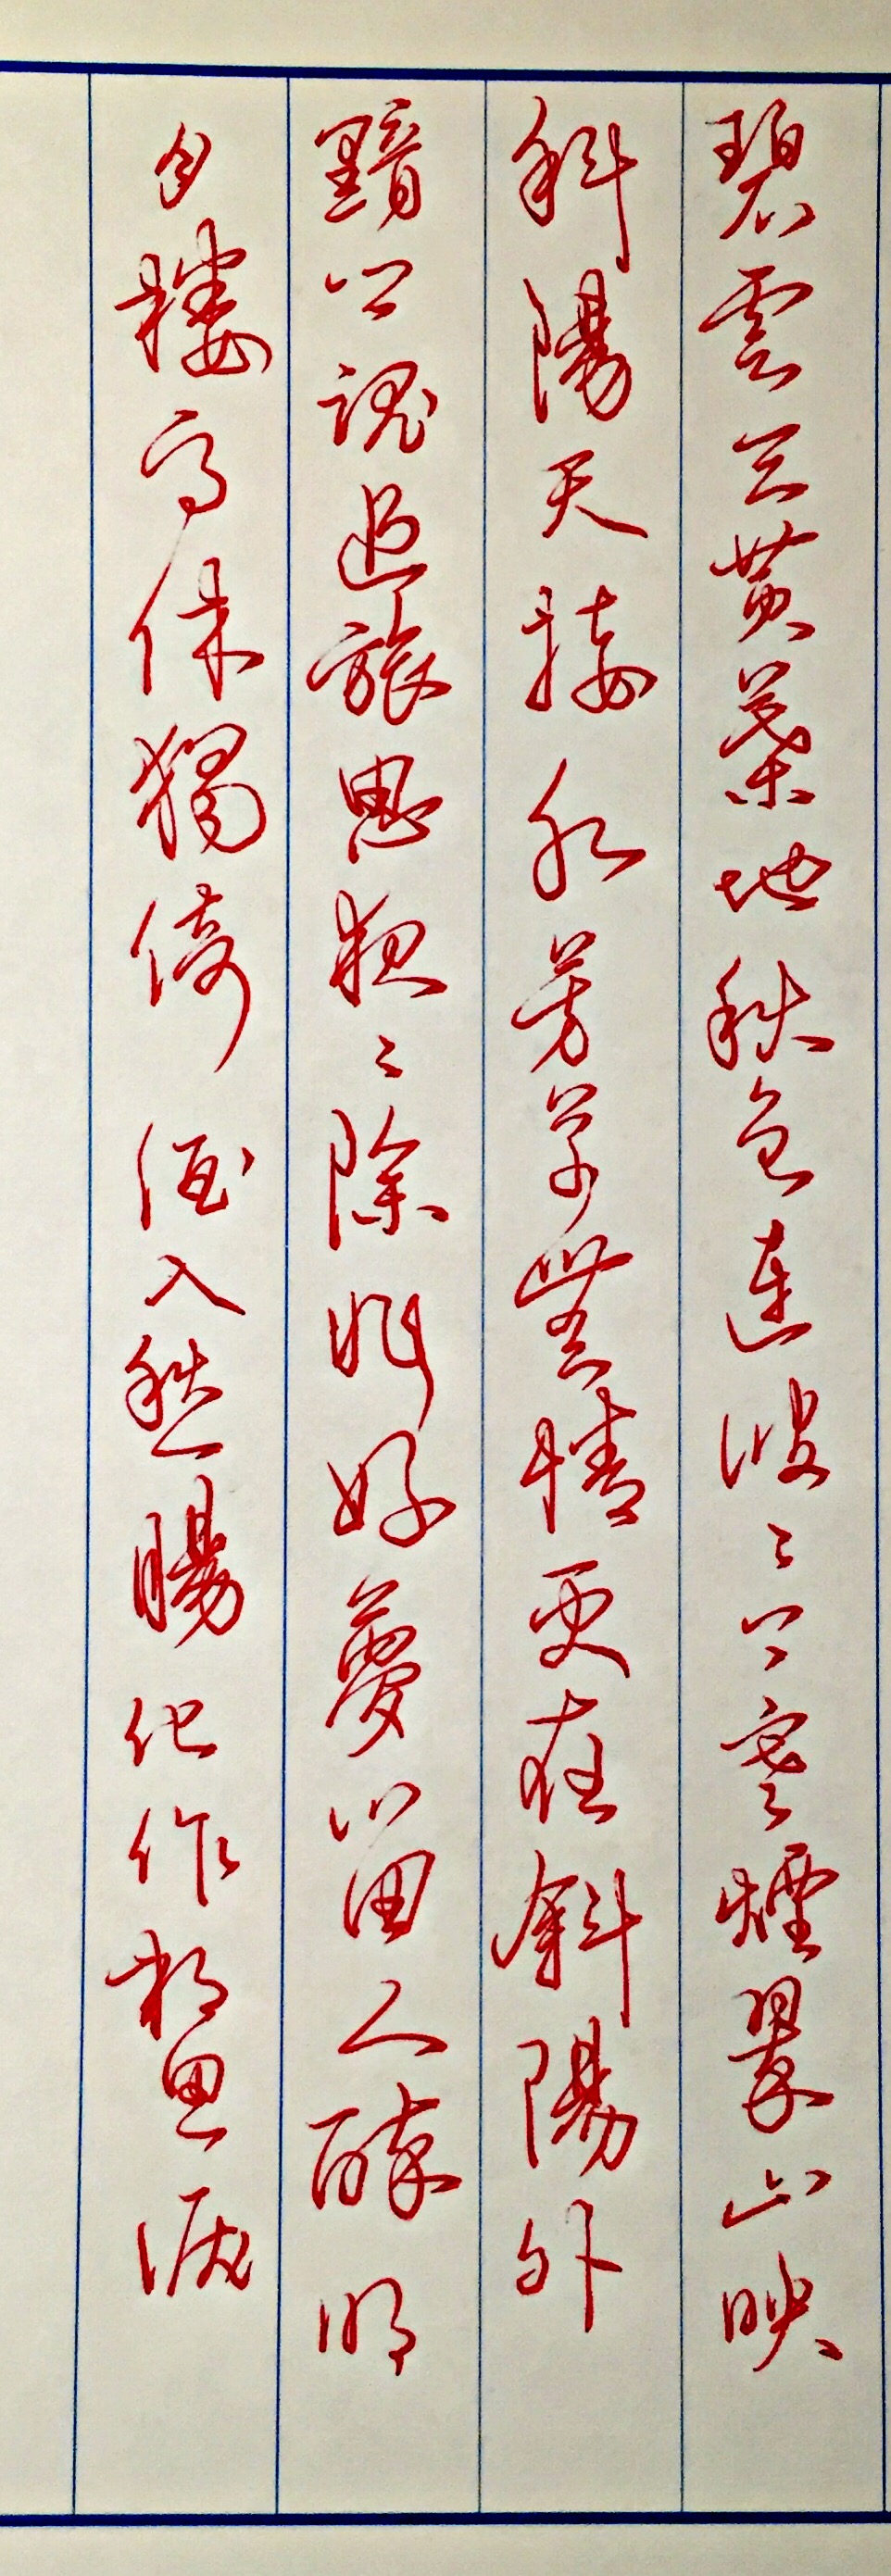 碧雲天黄葉地秋色連波々上寒煙翠山映
斜陽天接水芳草無情更在斜陽外
黯鄉魂追旅思夜々除非好夢留人醉明
月樓高休獨倚酒入愁腸化作相思淚